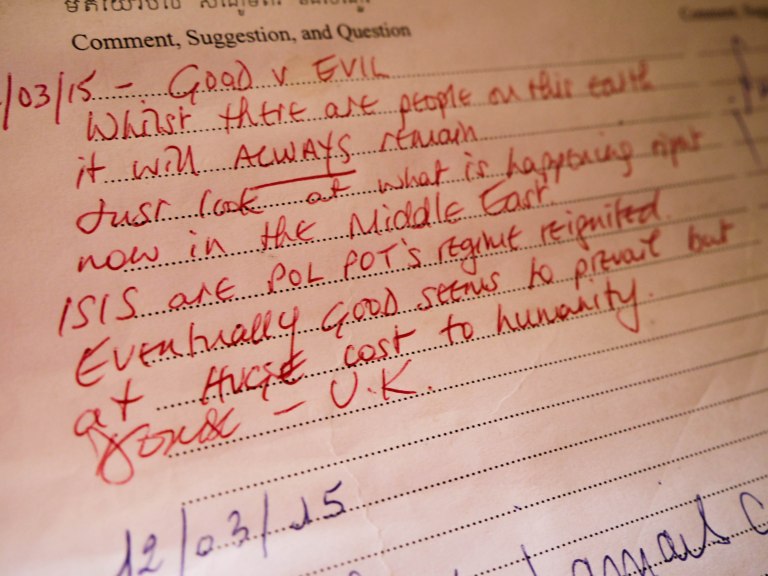 Comment, Suggestion, and Question
/03/15 - GOOD V EVIL
Whilst there are people on this earth
it will ALWAYS remain
Just look at what is happening right
now in the Middle East.
ISIS are POL POT's regime reignited.
Eventually GOOD seems to prevail but
at HUGE cost to humanity.
- U.K.
12/03/15